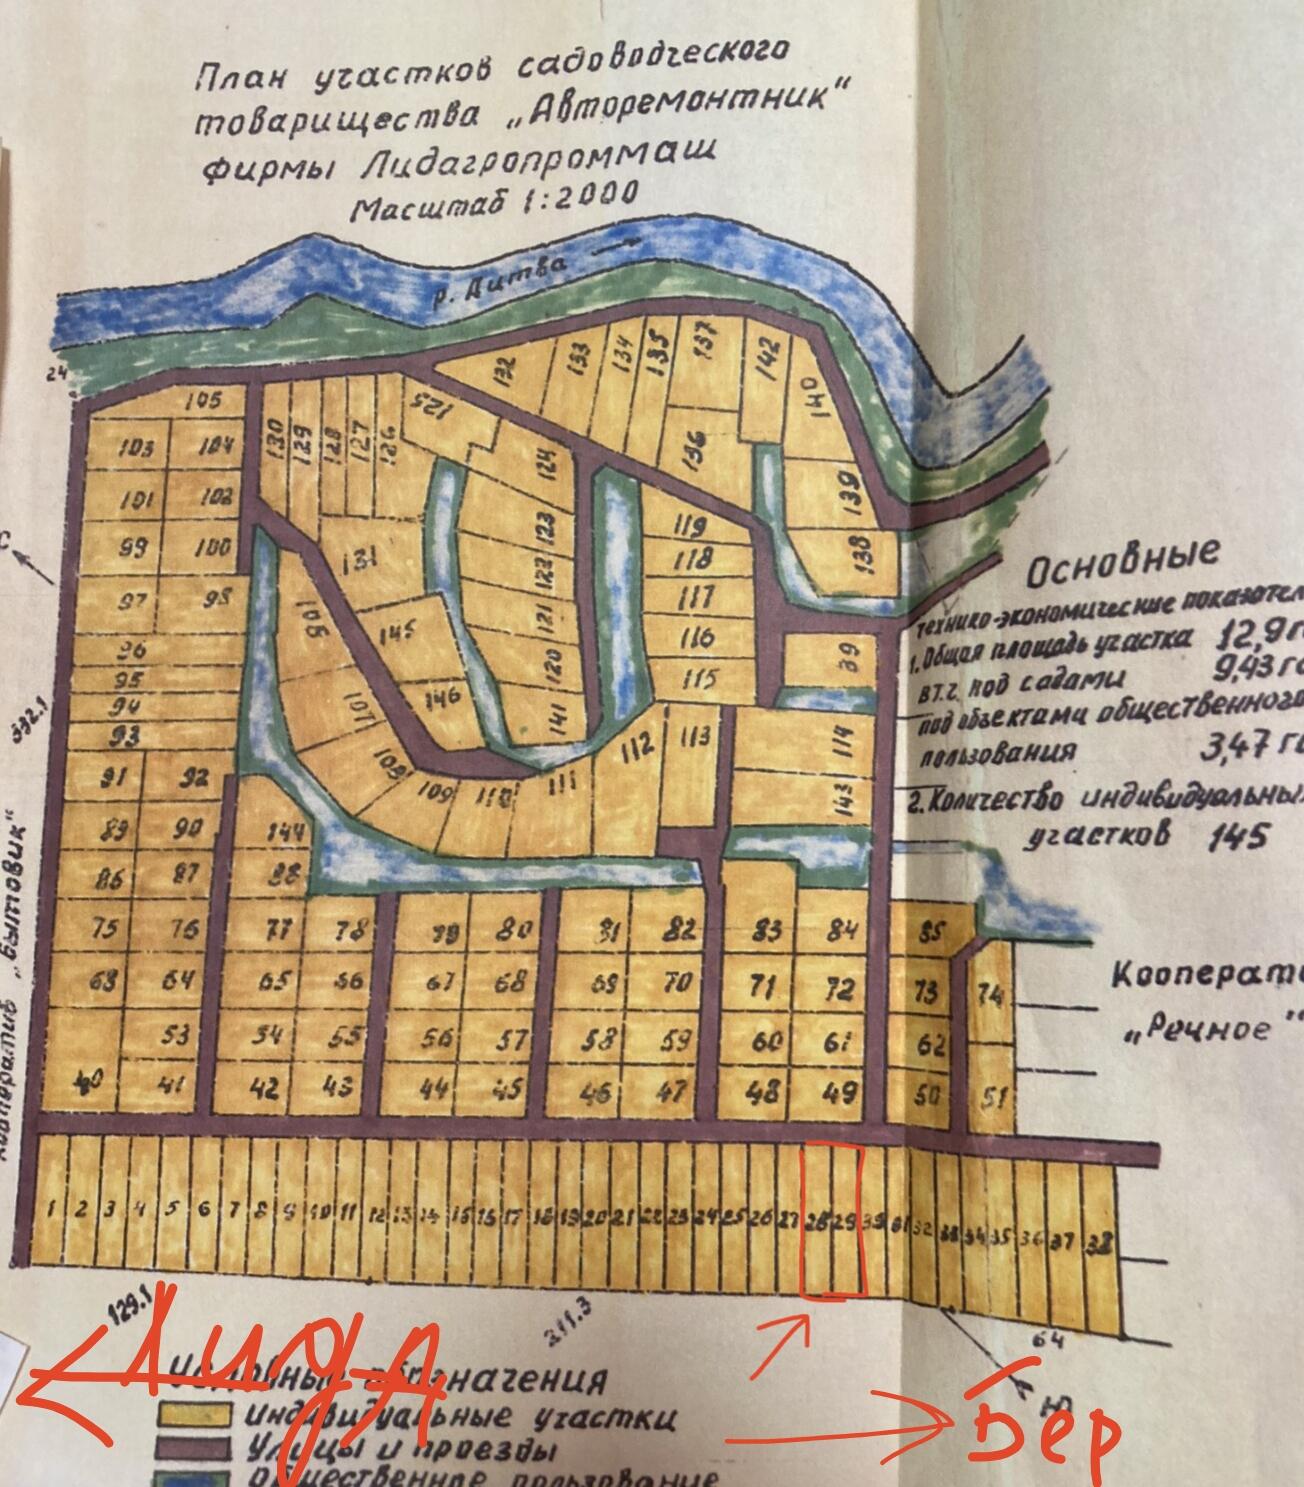 План участков садоводческого
товарищества „Авторемонтник“
фирмы Лидагропроммаш
Масштаб 1:2000
р. Дитва
24
132 133 134 135 137 142 140
105
130 129 128 127 126 125
103 104
124 136 139
101 102
119
99 100
123 118 138
131
97 98
122 117
106 145
121 116
96
120 115 39
95
146
94
107 141
93
112 113 114
91 92
108 109 110 111 143
89 90 144
86 87 88
75 76 77 78 79 80 81 82 83 84 85
63 64 65 66 67 68 69 70 71 72 73 74
53 54 55 56 57 58 59 60 61 62
40 41 42 43 44 45 46 47 48 49 50 51
1 2 3 4 5 6 7 8 9 10 11 12 13 14 15 16 17 18 19 20 21 22 23 24 25 26 27 28 29 30 31 32 33 34 35 36 37 38
С
332.1
Кооператив „Бытовик“
Основные
технико-экономические показател
1. Общая площадь участка 12,9 г
в т.ч. под садами 9,43 га
под объектами общественного
пользования 3,47 га
2. Количество индивидуальных
участков 145
Кооперати
„Речное“
129.1
211.3
64
Ю
Лида
Бер
Условные обозначения
Индивидуальные участки
Улицы и проезды
Общественное пользование